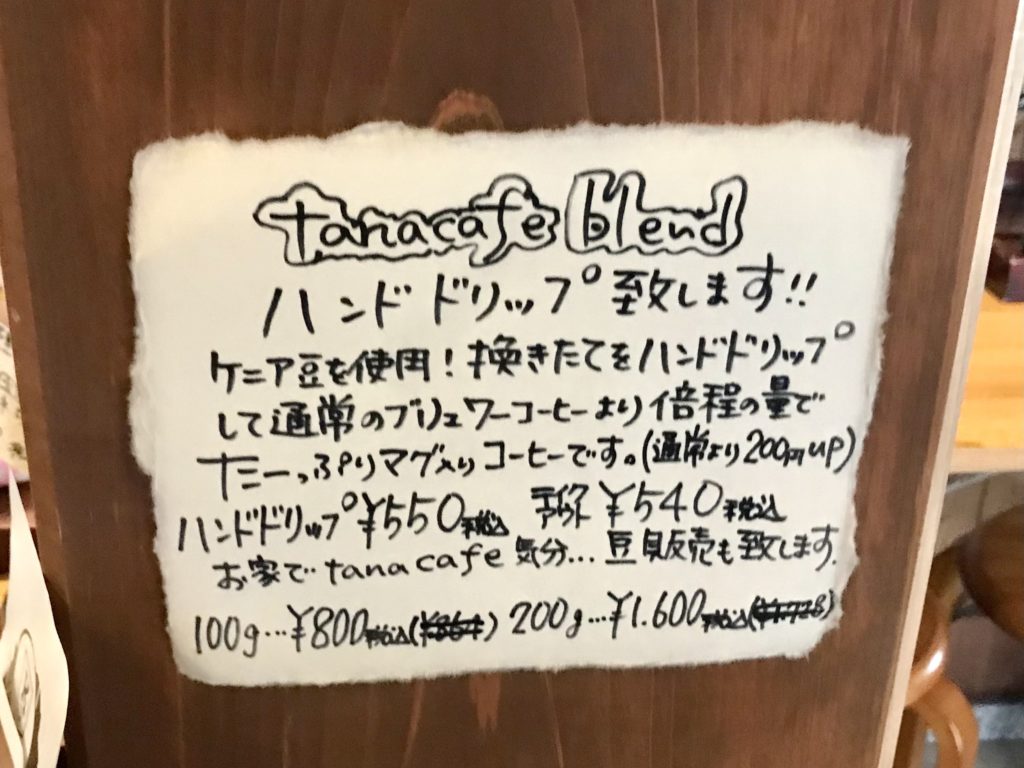 tanacafe blend
ハンドドリップ致します!!
ケニア豆を使用!挽きたてをハンドドリップ
して通常のブリュワーコーヒーより倍程の量で
たーっぷりマグ入りコーヒーです。(通常より200円up)
ハンドドリップ ¥550税込 テイクアウト ¥540税込
お家で tanacafe 気分... 豆販売も致します.
100g...¥800税込(¥864) 200g...¥1.600税込(¥1.728)